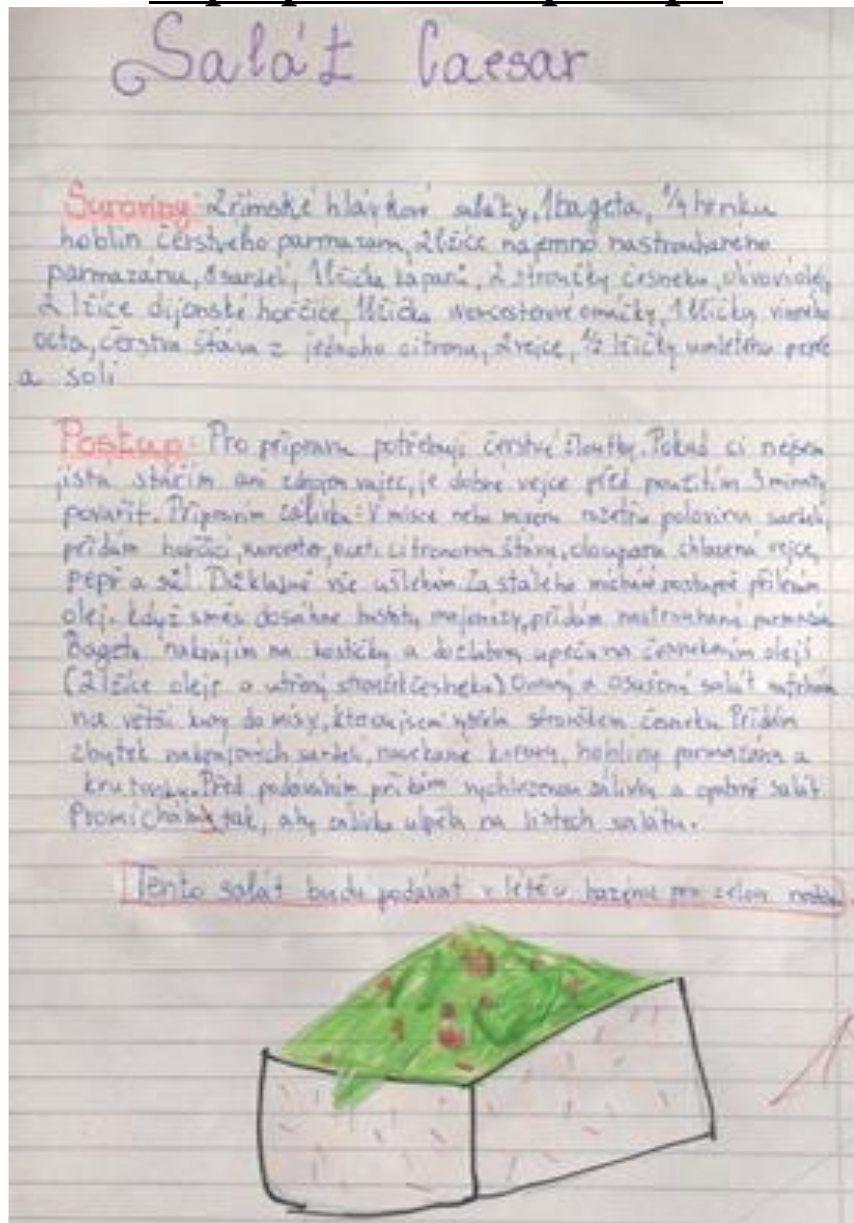 Salát Caesar
Suroviny: 2 římské hlávkové saláty, 1 bageta, 1/4 hrnku
hoblin čerstvého parmazanu, 2 lžíce najemno nastrouhaného
parmazánu, 8 sardelí, 1 lžička kaparů, 2 stroužky česneku, olivový olej,
2 lžíce dijonské hořčice, 1 lžička worcesterové omáčky, 1 lžičky vinného
octa, čerstva šťáva z jednoho citronu, 2 vejce, 1/2 lžičky umletého pepře
a soli
Postup: Pro přípravu potřebuji čerstvé žloutky. Pokud si nejsem
jista stářím ani zdrojem vajec, je dobré vejce před použitím 3 minuty
povařit. Připravím zálivku: V misce nebo rozetřu polovinu sardelí,
přidám hořčici, worcester, ocet, citronovou šťávu, chlazená vejce,
pepř a sůl. Důkladně vše ušlehám. Za stáleho míchání postupně přilévám
olej. když směs dosáhne hustoty majonézy, přidám nastrouhaný parmazán
Bagetu nakrájím na kostičky a dozlatova upeču na česnekovém oleji
(2 lžíce oleje a utřený stroužek česneku) Omytý a osušený salát natrhám
na větší kusy do mísy, kterou jsem vytřela stroužkem česneku. Přidám
zbytek nakrájených sardelí, nasekané kapary, hobliny parmazánu a
krutonky. Před podáváním přidám vychlazenou zálivku a opatrně salát
Promíchám tak, aby zálivka ulpěla na listech salátu.
Tento salát budu podávat v létě u bazénu pro celou rodinu.
1